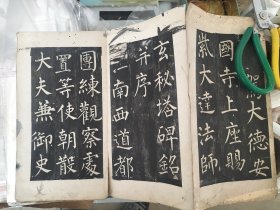 駕大德安
國寺上座賜
紫大達法師
玄秘塔碑銘
并序
江南西道都
團練觀察處
置等使朝散
大夫兼御史